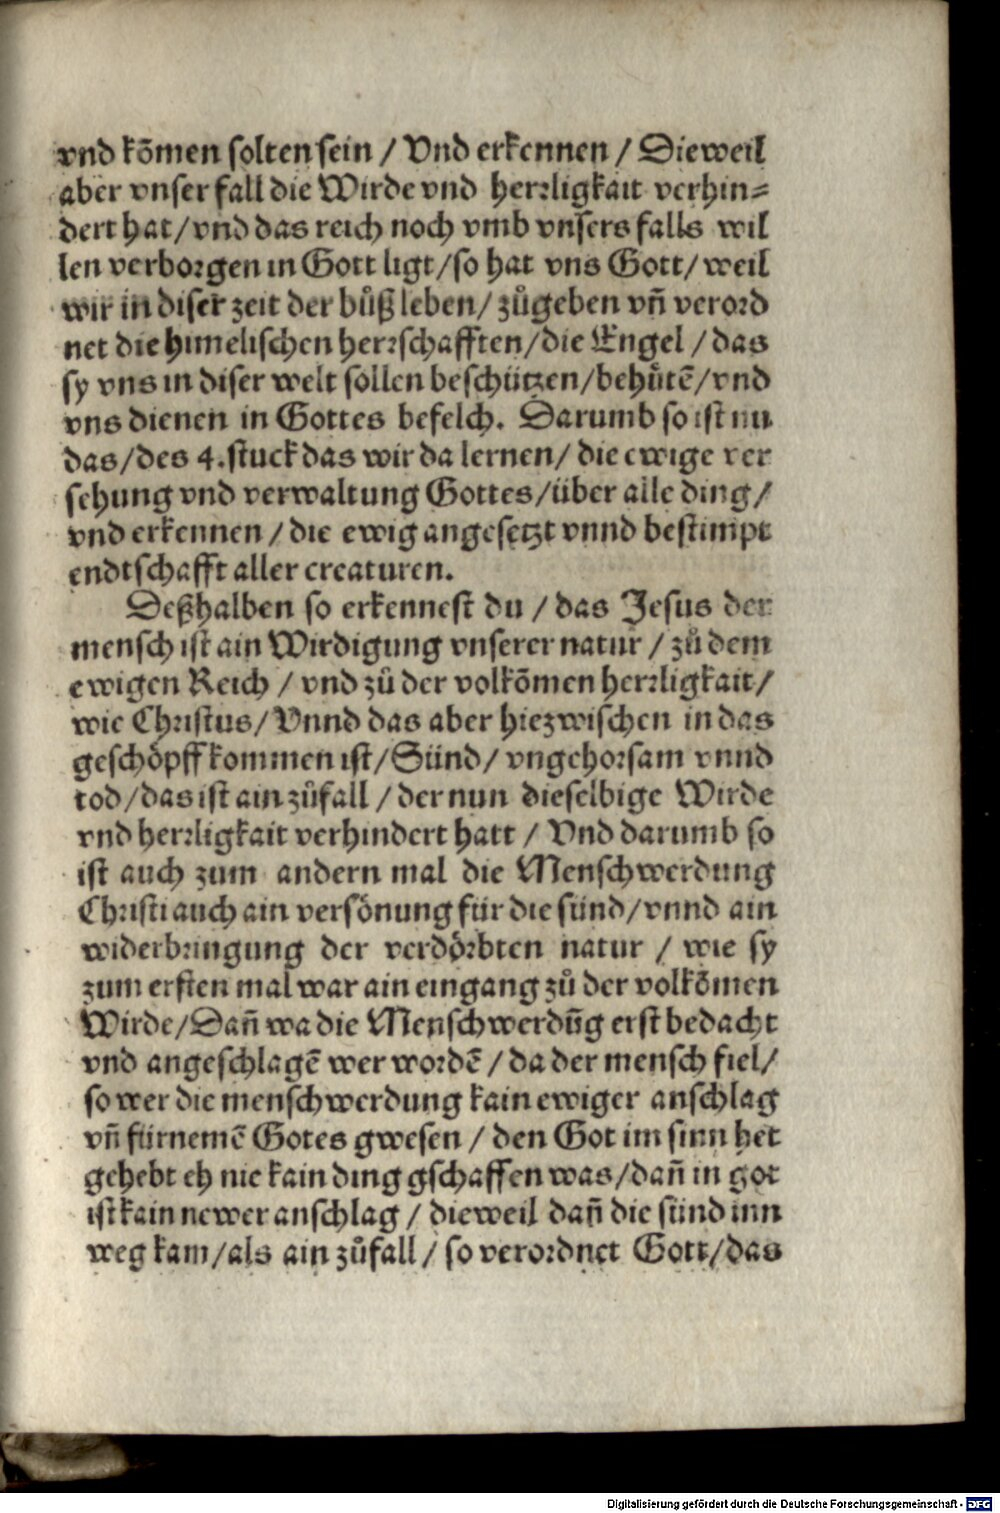 vnd kõmen solten sein / Vnd erkennen / Dieweil
aber vnser fall die Wirde vnd herꝛligkait verhin⸗
dert hat/vnd das reich noch vmb vnsers falls wil
len verborgen in Gott ligt/so hat vns Gott/weil
wir in diser zeit der bůß leben/ zůgeben vñ verord
net die himelischen herꝛschafften/die Engel / das
sy vns in diser welt sollen beschützen/behůtẽ/vnd
vns dienen in Gottes befelch. Darumb so ist nu
das/des 4.stuck das wir da lernen/ die ewige ver
sehung vnd verwaltung Gottes/über alle ding/
vnd erkennen / die ewig angesetzt vnnd bestimpt
endtschafft aller creaturen.
Deßhalben so erkennest du / das Jesus der
mensch ist ain Wirdigung vnserer natur / zů dem
ewigen Reich / vnd zů der volkõmen herꝛligkait/
wie Christus/ Vnnd das aber hiezwischen in das
geschöpff kommen ist/ Sünd/ vngehorsam vnnd
tod/das ist ain zůfall / der nun dieselbige Wirde
vnd herꝛligkait verhindert hatt / Vnd darumb so
ist auch zum andern mal die Menschwerdung
Christi auch ain versönung für die sünd/vnnd ain
widerbringung der verdörbten natur / wie sy
zum ersten mal war ain eingang zů der volkõmen
Wirde/Dañ wa die Menschwerdũg erst bedacht
vnd angeschlagẽ wer wordẽ / da der mensch fiel/
so wer die menschwerdung kain ewiger anschlag
vñ fürnemẽ Gotes gwesen / den Got im sinn het
gehebt eh nie kain ding gschaffen was/dañ in got
ist kain newer anschlag / dieweil dañ die sünd inn
weg kam/als ain zůfall / so verordnet Gott/das
Digitalisierung gefördert durch die Deutsche Forschungsgemeinschaft - DFG